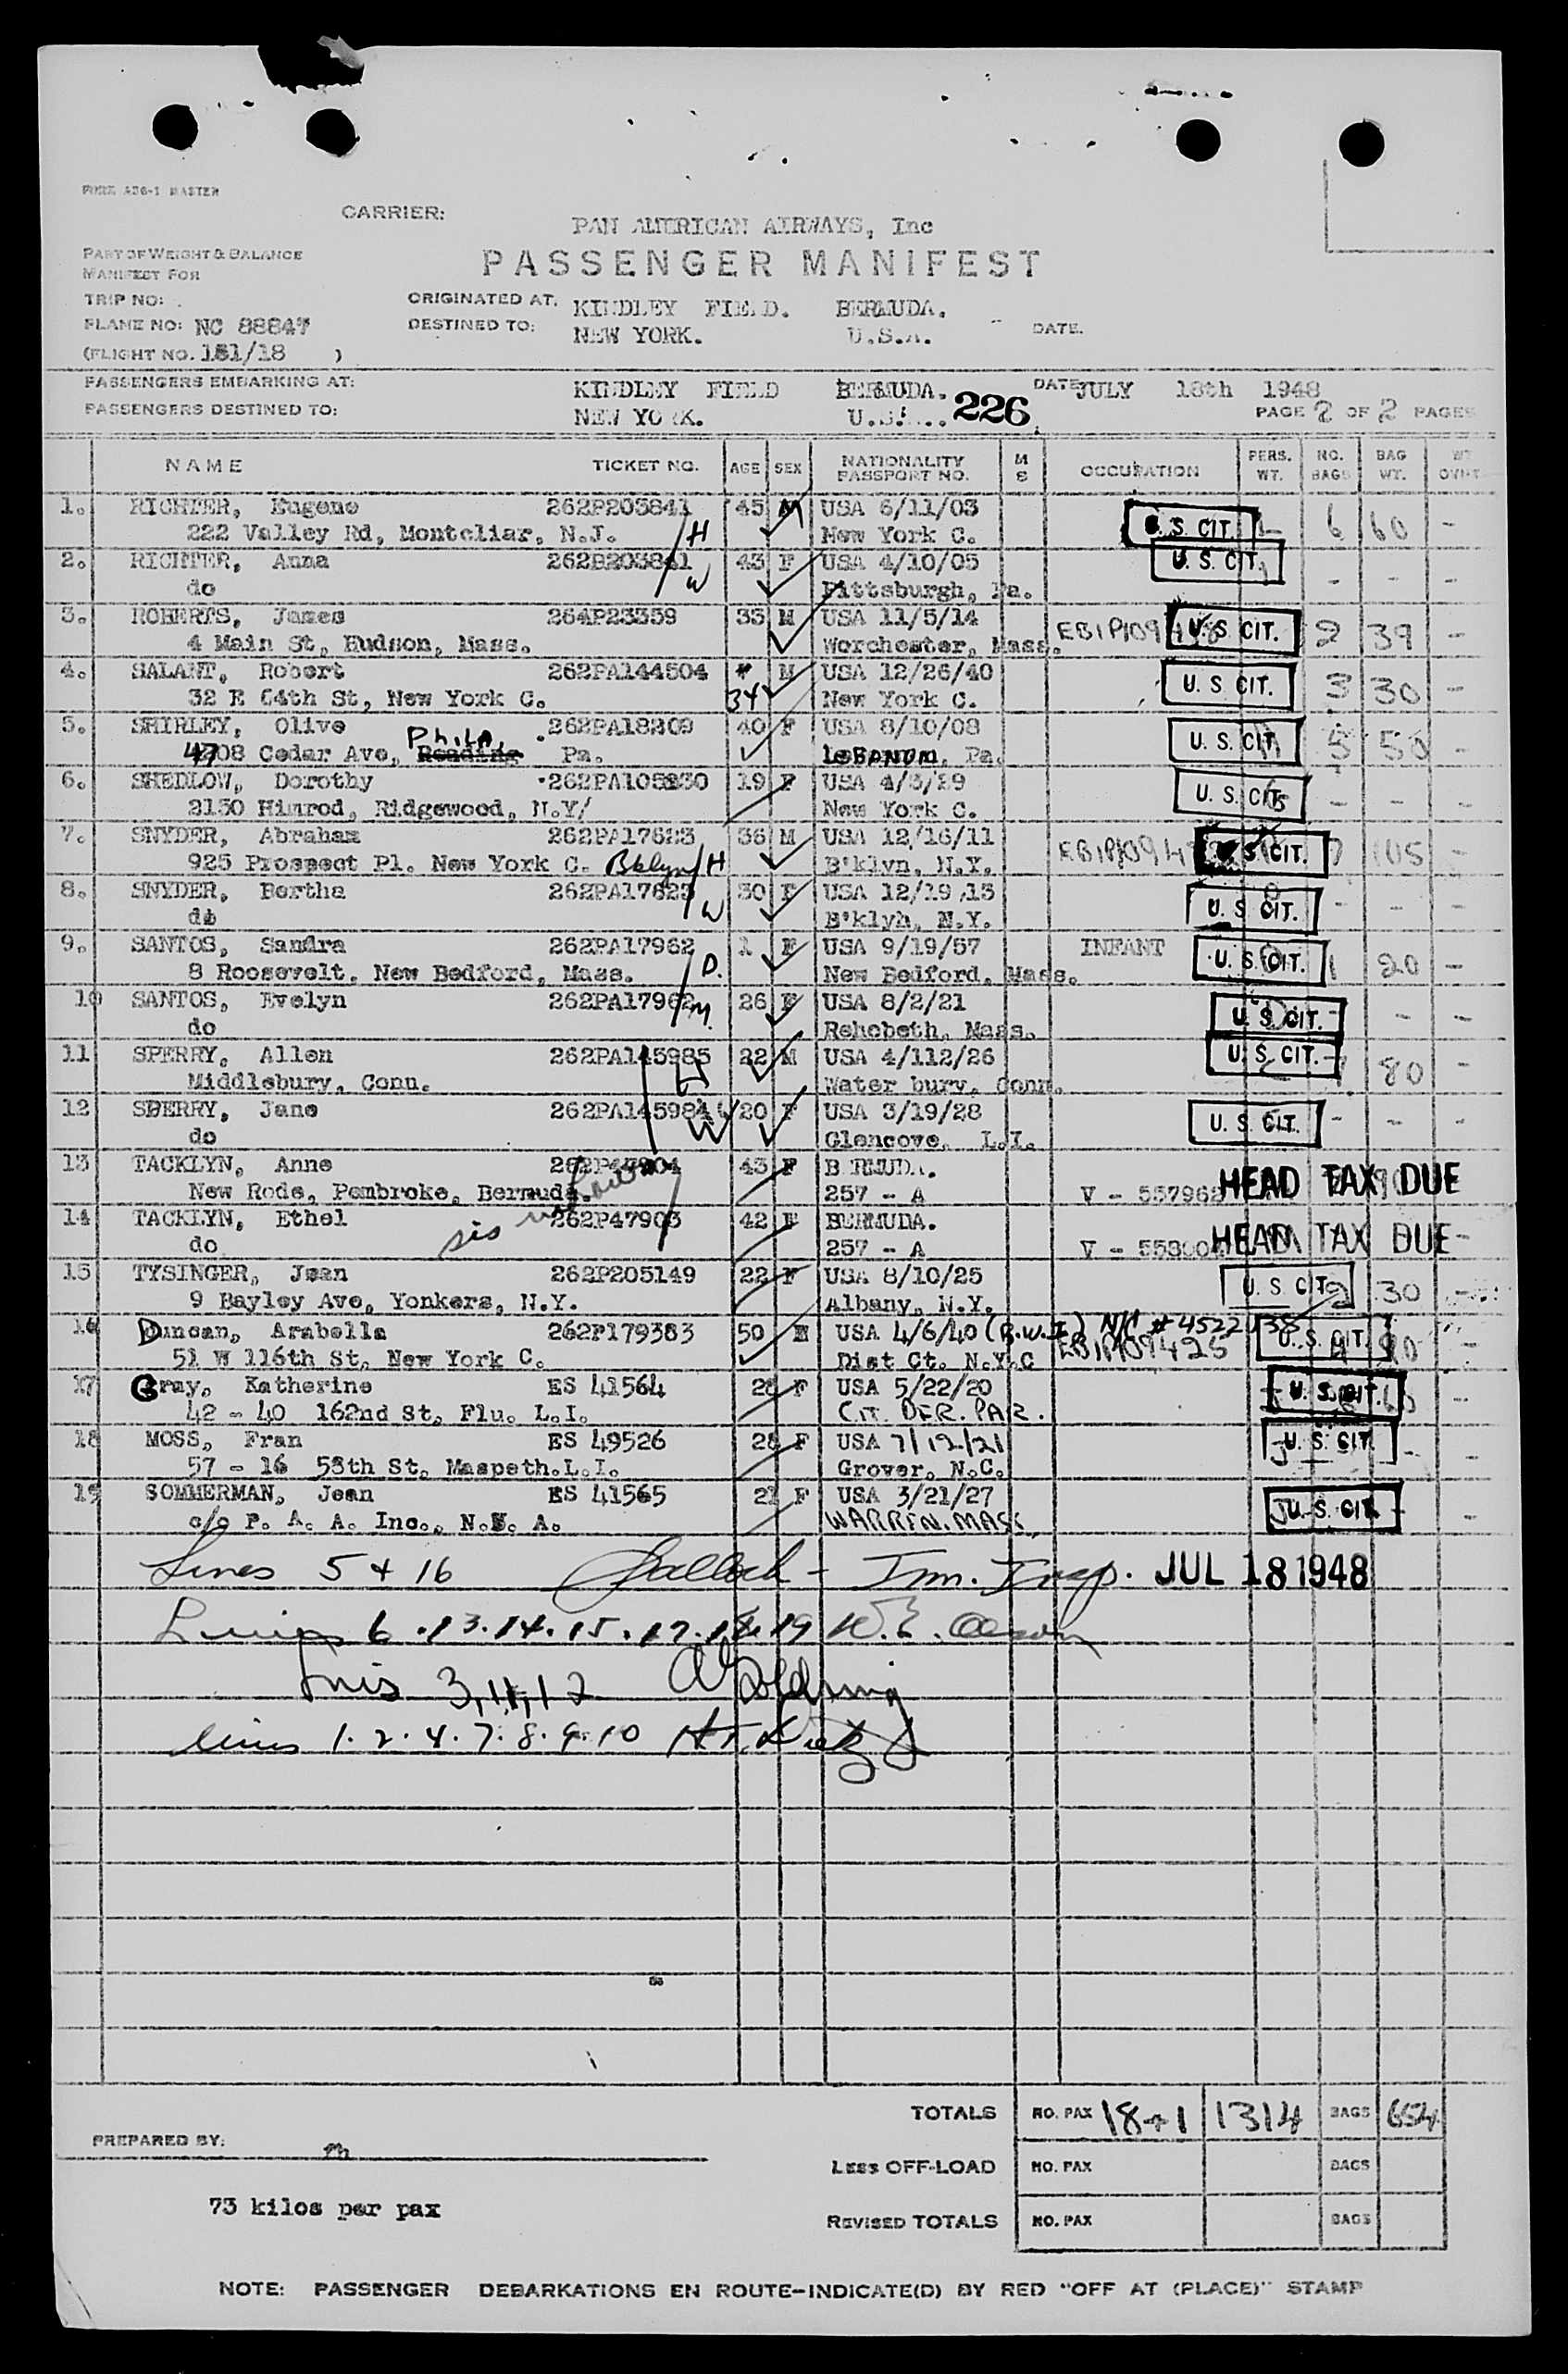 FORM A36-1 MASTER
CARRIER: PAN AMERICAN AIRWAYS, Inc
PART OF WEIGHT & BALANCE PASSENGER MANIFEST
MANIFEST FOR
TRIP NO: ORIGINATED AT. KINDLEY FIELD. BERMUDA.
PLANE NO: NC 88847 DESTINED TO: NEW YORK. U.S.A. DATE.
(FLIGHT NO. 151/18 )
PASSENGERS EMBARKING AT: KINDLEY FIELD BERMUDA. DATE JULY 18th 1948
PASSENGERS DESTINED TO: NEW YORK. U.S. 226 PAGE 2 OF 2 PAGES
NAME TICKET NO. AGE SEX NATIONALITY PASSPORT NO. M S OCCUPATION PERS. WT. NO. BAGS BAG WT. WT OVHT
1. RICHTER, Eugene 262P203841 45 M USA 6/11/03 U. S. CIT. 6 60 -
222 Valley Rd, Montcliar, N.J. H New York C.
2. RICHTER, Anna 262P203841 43 F USA 4/10/05 U. S. CIT. - - -
do W Pittsburgh, Pa.
3. ROBERTS, James 264P23359 33 M USA 11/5/14 U. S. CIT. 2 39 -
4 Main St, Hudson, Mass. Worchester, Mass. EB1P109
4. SALANT, Robert 262PA144504 * M USA 12/26/40 U. S. CIT. 3 30 -
32 E 64th St, New York C. 34 New York C.
5. SHIRLEY, Olive 262PA18209 40 F USA 8/10/08 U. S. CIT. 5 50 -
4708 Cedar Ave, Reading Phila Pa. LEBANON, Pa.
6. SHEDLOW, Dorothy 262PA105830 19 F USA 4/3/29 U. S. CIT. - - -
2150 Himrod, Ridgewood, N.Y/ New York C.
7. SNYDER, Abraham 262PA17623 36 M USA 12/16/11 U. S. CIT. 7 105 -
925 Prospect Pl. New York C. Bklyn H B'klyn, N.Y. EB1P1094
8. SNYDER, Bertha 262PA17623 30 F USA 12/19,13 U. S. CIT. - - -
do W B'klyh, N.Y.
9. SANTOS, Sandra 262PA17962 1 F USA 9/19/57 INFANT U. S. CIT. 1 20 -
8 Roosevelt, New Bedford, Mass. D. New Bedford, Mass.
10 SANTOS, Evelyn 262PA17962 26 F USA 8/2/21 U. S. CIT. - - -
do M. Rehobeth, Mass.
11 SPERRY, Allen 262PA145985 22 M USA 4/112/26 U. S. CIT. 80 -
Middlebury, Conn. H Water bury, Conn.
12 SPERRY, Jane 262PA145984 20 F USA 3/19/28 U. S. CIT. - - -
do W Glencove, L.I.
13 TACKLYN, Anne 262P47904 43 F BERMUDA. HEAD TAX DUE
New Rode, Pembroke, Bermuda. 257 - A V - 557962
14 TACKLYN, Ethel 262P47903 42 F BERMUDA. HEAD TAX DUE
do sis 257 - A V -
15 TYSINGER, Jean 262P205149 22 F USA 8/10/25 U. S. CIT. 2 30 -
9 Bayley Ave, Yonkers, N.Y. Albany, N.Y.
16 Duncan, Arabella 262P179383 50 F USA 4/6/40 (B.W.I) N/C # 4522138 U. S. CIT.
51 W 116th St, New York C. Dist Ct. N.Y.C EB1P109425
17 Gray, Katherine ES 41564 28 F USA 5/22/20 U. S. CIT. -
42 - 40 162nd St, Flu. L.I. CIT. DER. PAR.
18 MOSS, Fran ES 49526 28 F USA 7/12/21 U. S. CIT. - -
57 - 16 58th St, Maspeth.L.I. Grover, N.C.
19 SOMMERMAN, Jean ES 41565 21 F USA 3/21/27 U. S. CIT. - -
c/o P. A. A. Inc., N.Y. A. WARREN, MASS
Lines 5 + 16 Imm. Insp. JUL 18 1948
Lines 6.13.14.15.17.18.19 W. E. Olson
Lines 3, 11, 12 A Goldring
lines 1.2.4.7.8.9.10
TOTALS NO. PAX 18+1 1314 BAGS 654
PREPARED BY:
LESS OFF-LOAD NO. PAX BAGS
73 kilos per pax
REVISED TOTALS NO. PAX BAGS
NOTE: PASSENGER DEBARKATIONS EN ROUTE-INDICATE(D) BY RED "OFF AT (PLACE)" STAMP